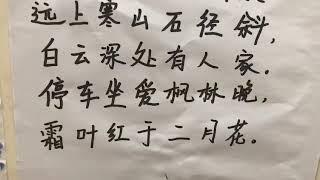 远上寒山石径斜,
白云深处有人家.
停车坐爱枫林晚,
霜叶红于二月花.